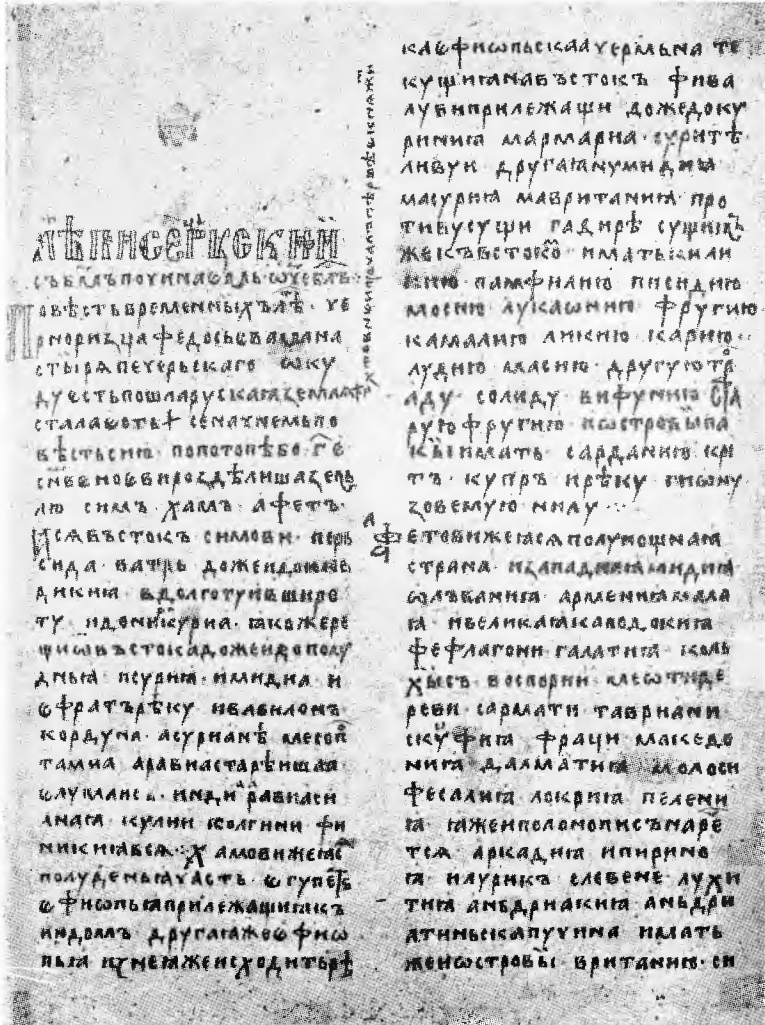 лѣтописец рускии
съ бл҃гослвниемъ почина ѿч҃е блг҃ви
Повѣсть временныхъ лѣтъ че
рноризца федосьева манаст
ырѧ печерьскаго ѿку
ду есть пошла рускаꙗ землѧ
стала есть се начнемъ по
вѣсть сию по потопѣ бо г҃е
сн҃ве ноеви роздѣлиша земь
лю симъ хамъ афетъ
Иꙗсѧ въстокъ симови персь
сида ватрь доже и до инѣ
дикиꙗ в долготу и въ широ
ту и до никуриꙗ ꙗкоже ре
щи ѿ въстока доже и до полу
дньꙗ и суриꙗ и мидиꙗ и
ефратъ рѣку и вавилонъ
кордуна асуриане месопо
тамиа аравиа старѣишаа
елумаись инди равиа си
лнаꙗ кулии колгини фи
никиꙗ всѧ Хамови же ꙗсѧ
полуденьꙗ часть егупетъ
ефиѡпьꙗ прилежащиꙗ къ
индомъ другаꙗ же ефиѡ
пьꙗ из неꙗже исходить рѣ
ка ефиѡпьскаа чермьна те
кущиꙗ на въстокъ фива
луви прилежащи доже до ку
риниꙗ мармариа сурите
ливуи другаꙗ нумидиꙗ
масуриꙗ мавританиꙗ про
тиву сущи гадирѣ сущимъ
же къ въстокомъ имать кили
кию памфилию писидию
мосию лукаѡнию фругию
камалию ликию карию
лудию масию другую тро
аду солиду вифунию ста
рую фругию и ѡстровы па
кы имать сарданию кри
тъ купръ и рѣку гиѡну
зовемую нилу
Афетови же ꙗсѧ полунощнаꙗ
страна и западнаꙗ мидиꙗ
ѡлъваниꙗ армениꙗ мала
ꙗ и великаꙗ каподокиꙗ
фефлагони галатиꙗ колъ
хысъ воспории меѡти де
реви сармати тавриани
скуфиꙗ фраци македо
ниꙗ далматиꙗ молоси
фесалиꙗ локриꙗ пелени
ꙗ ꙗже и полопонисъ наре
тсѧ аркадиꙗ ипирино
ꙗ илурикъ словене лухи
тиꙗ аньдриакиꙗ аньдри
атиньска пучина имать
же и ѡстровы вританию си